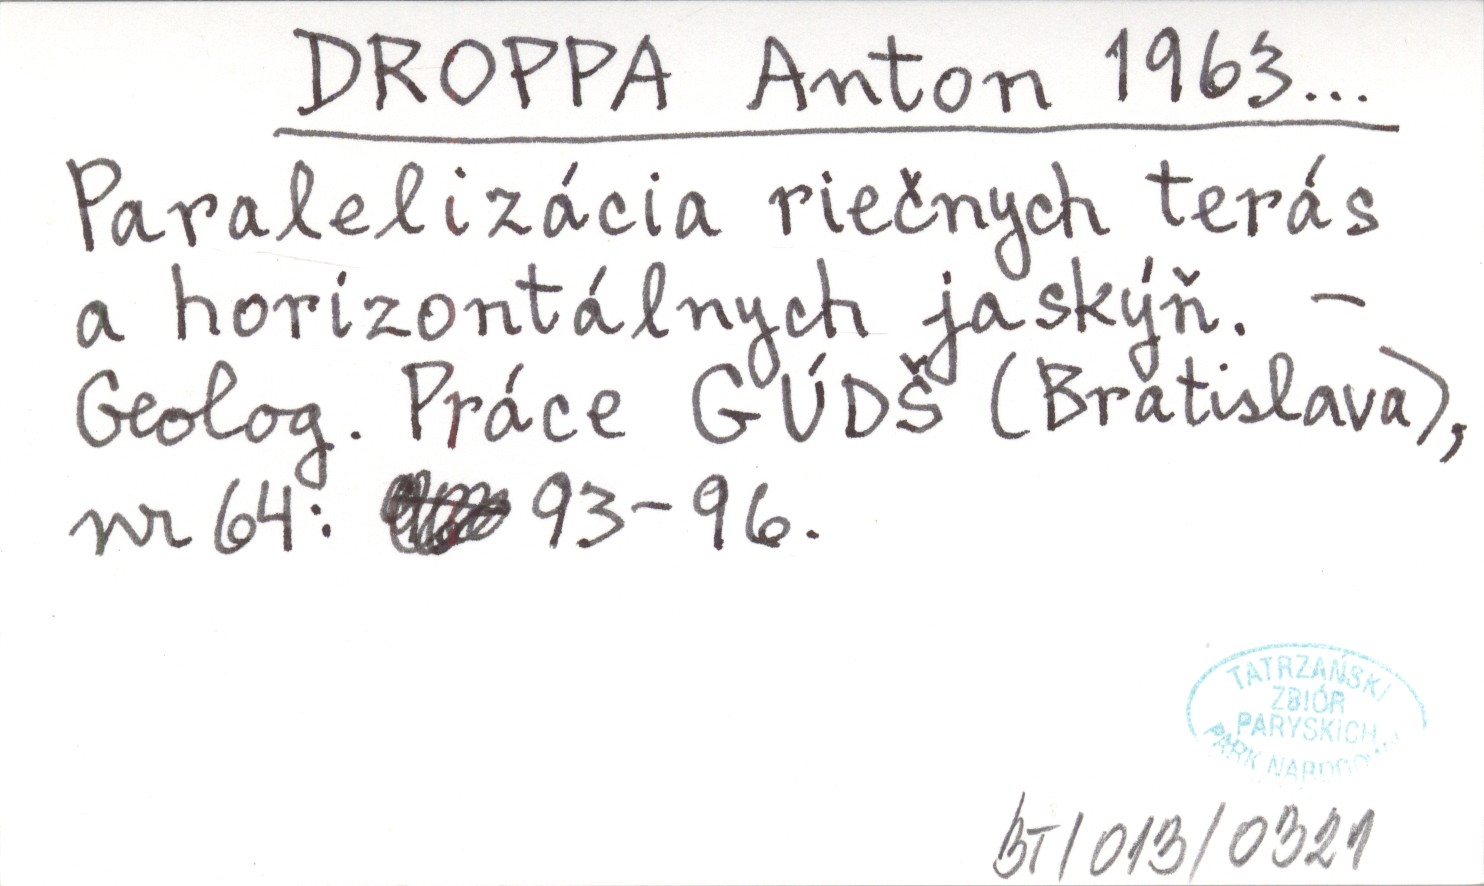 DROPPA Anton 1963...
Paralelizácia riečnych terás
a horizontálnych jaskýň. –
Geolog. Práce GÚDŠ (Bratislava),
nr 64: 93-96.
TATRZAŃSKI
ZBIÓR
PARYSKICH
PARK NARODOWY
BT/013/0321